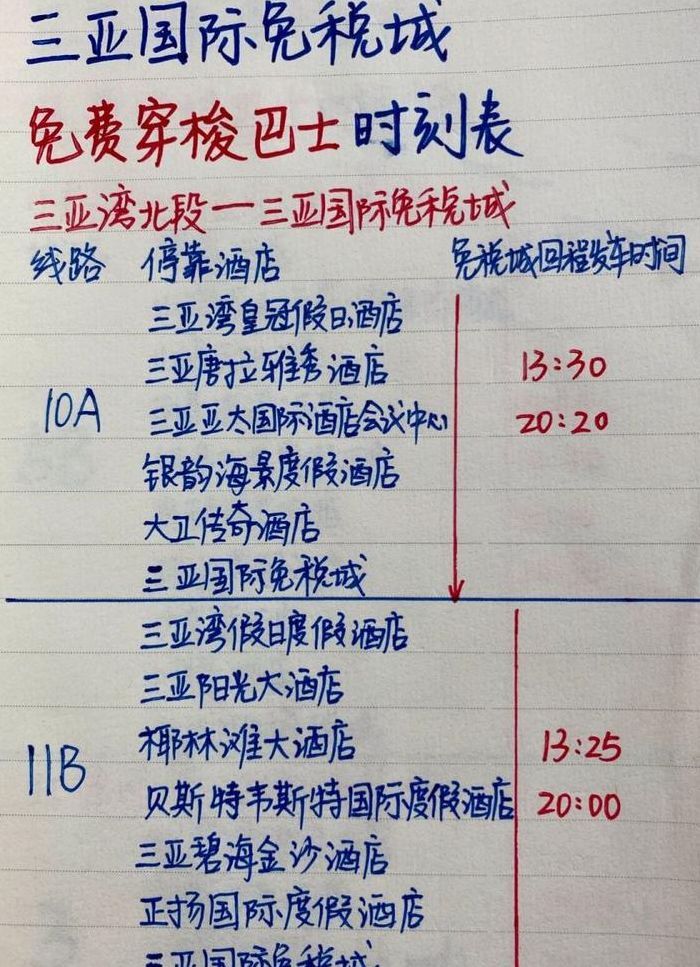 三亚国际免税城
免费穿梭巴士时刻表
三亚湾北段一三亚国际免税城
线路 停靠酒店 免税城回程发车时间
三亚湾皇冠假日酒店
三亚唐拉雅秀酒店 13:30
10A 三亚亚太国际酒店会议中心 20:20
银韵海景度假酒店
大卫传奇酒店
三亚国际免税城
三亚湾假日度假酒店
三亚阳光大酒店
椰林滩大酒店 13:25
11B 贝斯特韦斯特国际度假酒店 20:00
三亚碧海金沙酒店
正扬国际度假酒店
三亚国际免税城